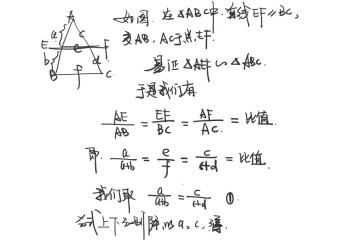 A
a c
E e F
b d
B f C
如图. 在△ABC中. 有线EF∥BC,
交AB, AC于点E.F.
易证△AEF∽△ABC.
于是我们有
AE/AB = EF/BC = AF/AC. = 比值.
即. a/a+b = e/f = c/c+d = 比值.
我们取 a/a+b = c/c+d ①
公式上下分别除以a, c, 得.